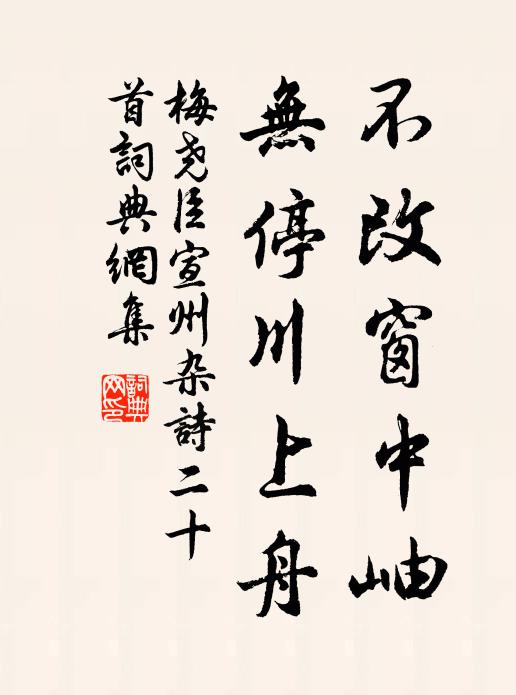 不改窗中岫
無停川上舟
梅尧臣宣州杂詩二十
首詞典網集
詞典
网印